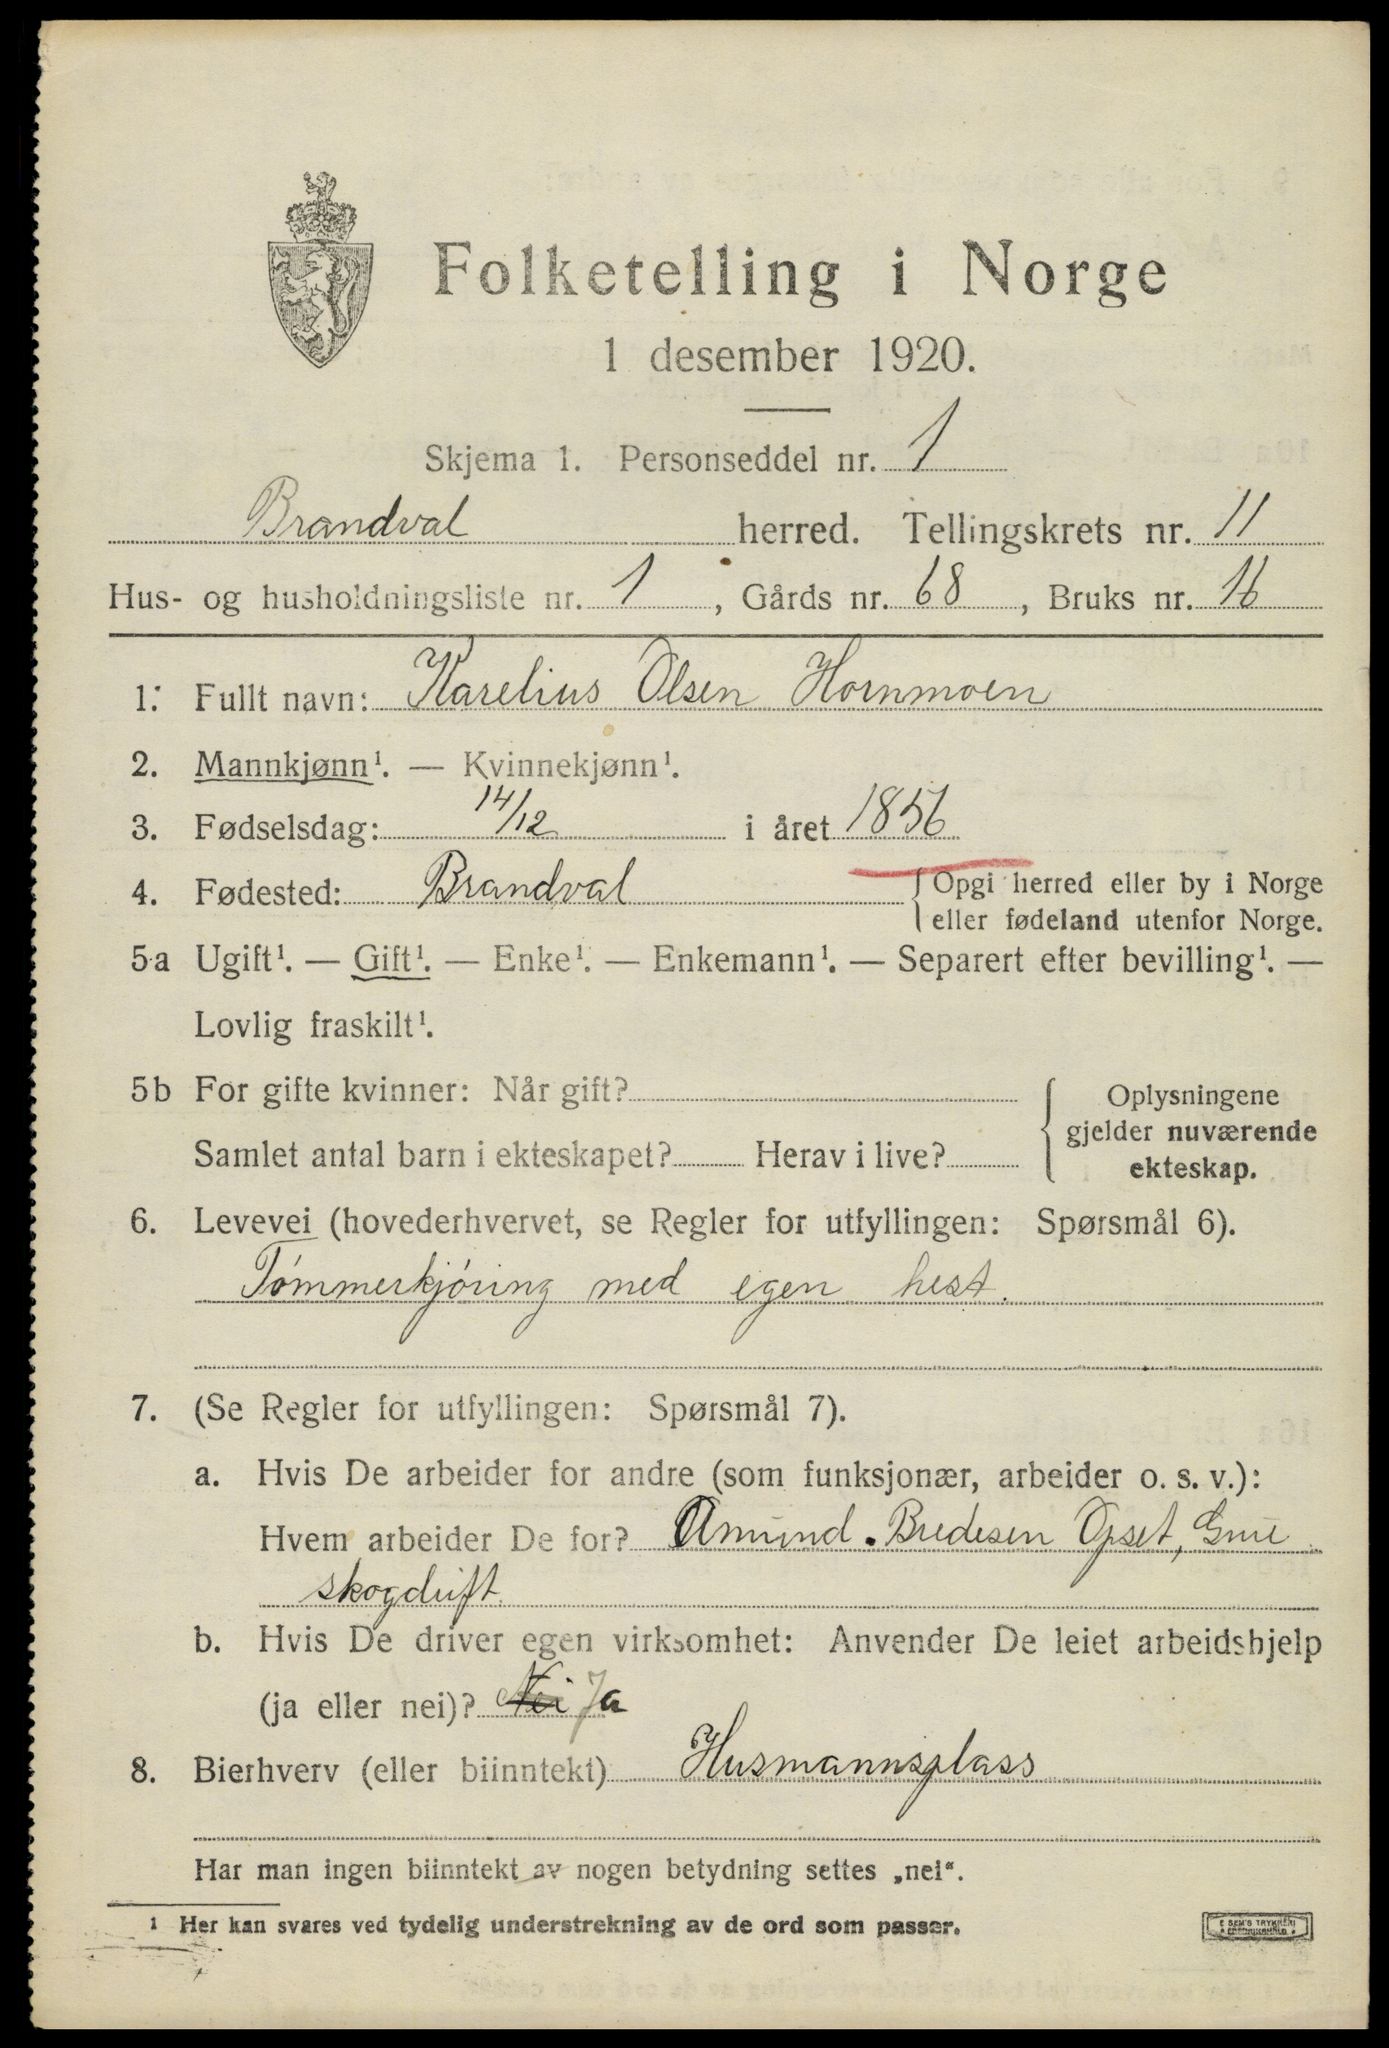 Folketelling i Norge
1 desember 1920.
Skjema 1. Personseddel nr. 1
Brandval herred. Tellingskrets nr. 11
Hus- og husholdningsliste nr. 1, Gårds nr. 68, Bruks nr. 16
1. Fullt navn: Karelius Olsen Hornmoen
2. Mannkjønn¹. — Kvinnekjønn¹.
3. Fødselsdag: 14/12 i året 1856
4. Fødested: Brandval { Opgi herred eller by i Norge
eller fødeland utenfor Norge.
5a Ugift¹. — Gift¹. — Enke¹. — Enkemann¹. — Separert efter bevilling¹. —
Lovlig fraskilt¹.
5b For gifte kvinner: Når gift?
Samlet antal barn i ekteskapet? Herav i live?
{ Oplysningene
gjelder nuværende
ekteskap.
6. Levevei (hovederhvervet, se Regler for utfyllingen: Spørsmål 6).
Tømmerkjøring med egen hest.
7. (Se Regler for utfyllingen: Spørsmål 7).
a. Hvis De arbeider for andre (som funksjonær, arbeider o. s. v.):
Hvem arbeider De for? Amund. Bredesen Opset, Grue
skogdrift.
b. Hvis De driver egen virksomhet: Anvender De leiet arbeidshjelp
(ja eller nei)? Nei Ja
8. Bierhverv (eller biinntekt) Husmannsplass
Har man ingen biinntekt av nogen betydning settes „nei“.
¹ Her kan svares ved tydelig understrekning av de ord som passer.
E SEM'S TRYKKERI
FREDRIKSHALD